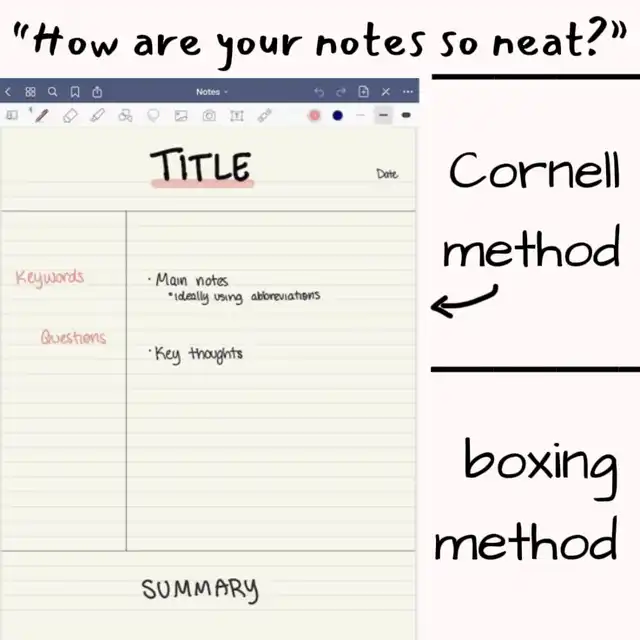 "How are your notes so neat?"
Notes
TITLE
Date
Keywords
• Main notes
*ideally using abbreviations
Questions
• Key thoughts
SUMMARY
Cornell
method
boxing
method